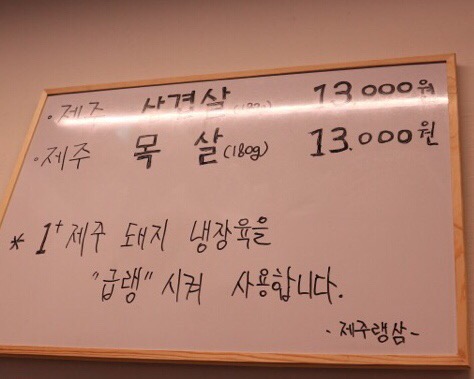 ·제주 삼겹살(180g) 13.000원
·제주 목살(180g) 13.000원
* 1+ 제주 돼지 냉장육을
"급랭" 시켜 사용합니다.
- 제주랭삼 -